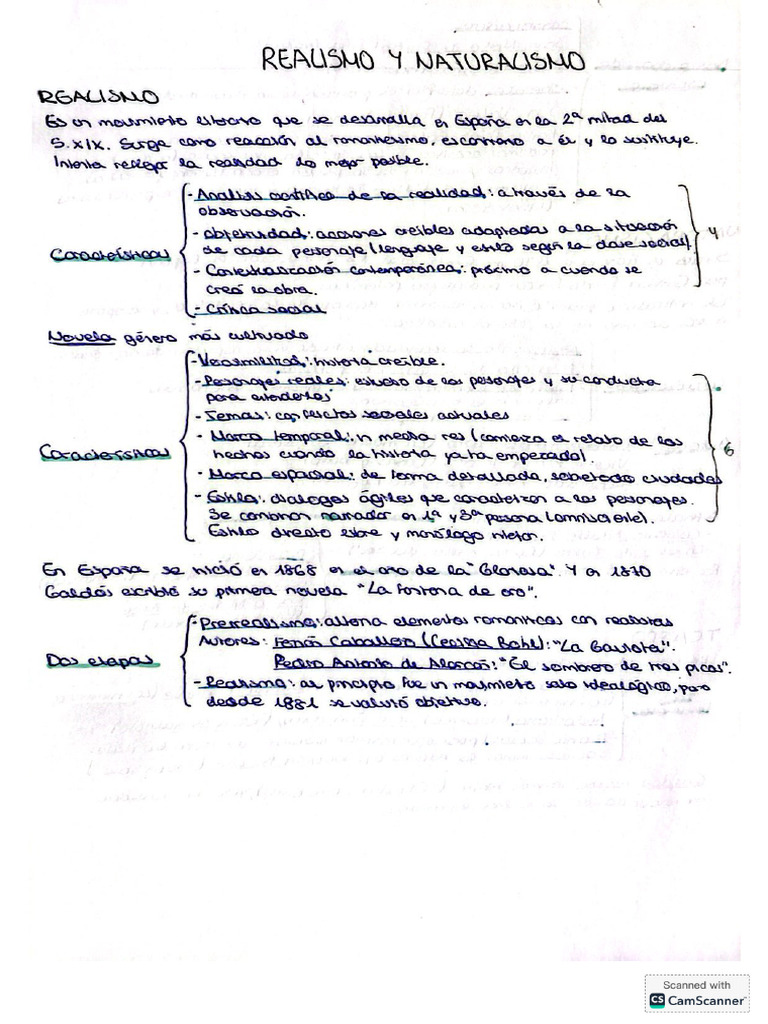 REALISMO Y NATURALISMO
REALISMO
Es un movimiento literario que se desarrolla en España en la 2ª mitad del
S. XIX. Surge como reacción al romanticismo, es contrario a él y lo sustituye.
Intenta reflejar la realidad lo mejor posible.
Características
- Análisis científico de la realidad: a través de la
observación.
- Objetividad: acciones creíbles adaptadas a la situación
de cada personaje (lenguaje y estilo según la clase social).
- Contextualización contemporánea: próximo a cuando se
creó la obra.
- Crítica social
4
Novela género más cultivado
Características
- Verosimilitud: historia creíble.
- Personajes reales: estudio de los personajes y su conducta
para entenderlos
- Temas: conflictos sociales actuales
- Marco temporal: in media res (comienza el relato de los
hechos cuando la historia ya ha empezado).
- Marco espacial: de forma detallada, sobretodo ciudades
- Estilo: dialogos ágiles que caracterizan a los personajes.
Se combinan narrador en 1ª y 3ª persona (omnisciente).
Estilo directo libre y monólogo interior.
6
En España se inició en 1868 en el año de la "Gloriosa". Y en 1870
Galdós escribió su primera novela "La fontana de oro".
Dos etapas
- Prerrealismo: alterna elementos romanticos con realistas
Autores: Fernán Caballero (Cecilia Böhl): "La Gaviota".
Pedro Antonio de Alarcón: "El sombrero de tres picos".
- Realismo: al principio fue un movimiento solo idealógico, pero
desde 1881 se volvió objetivo.
Scanned with
CS CamScanner